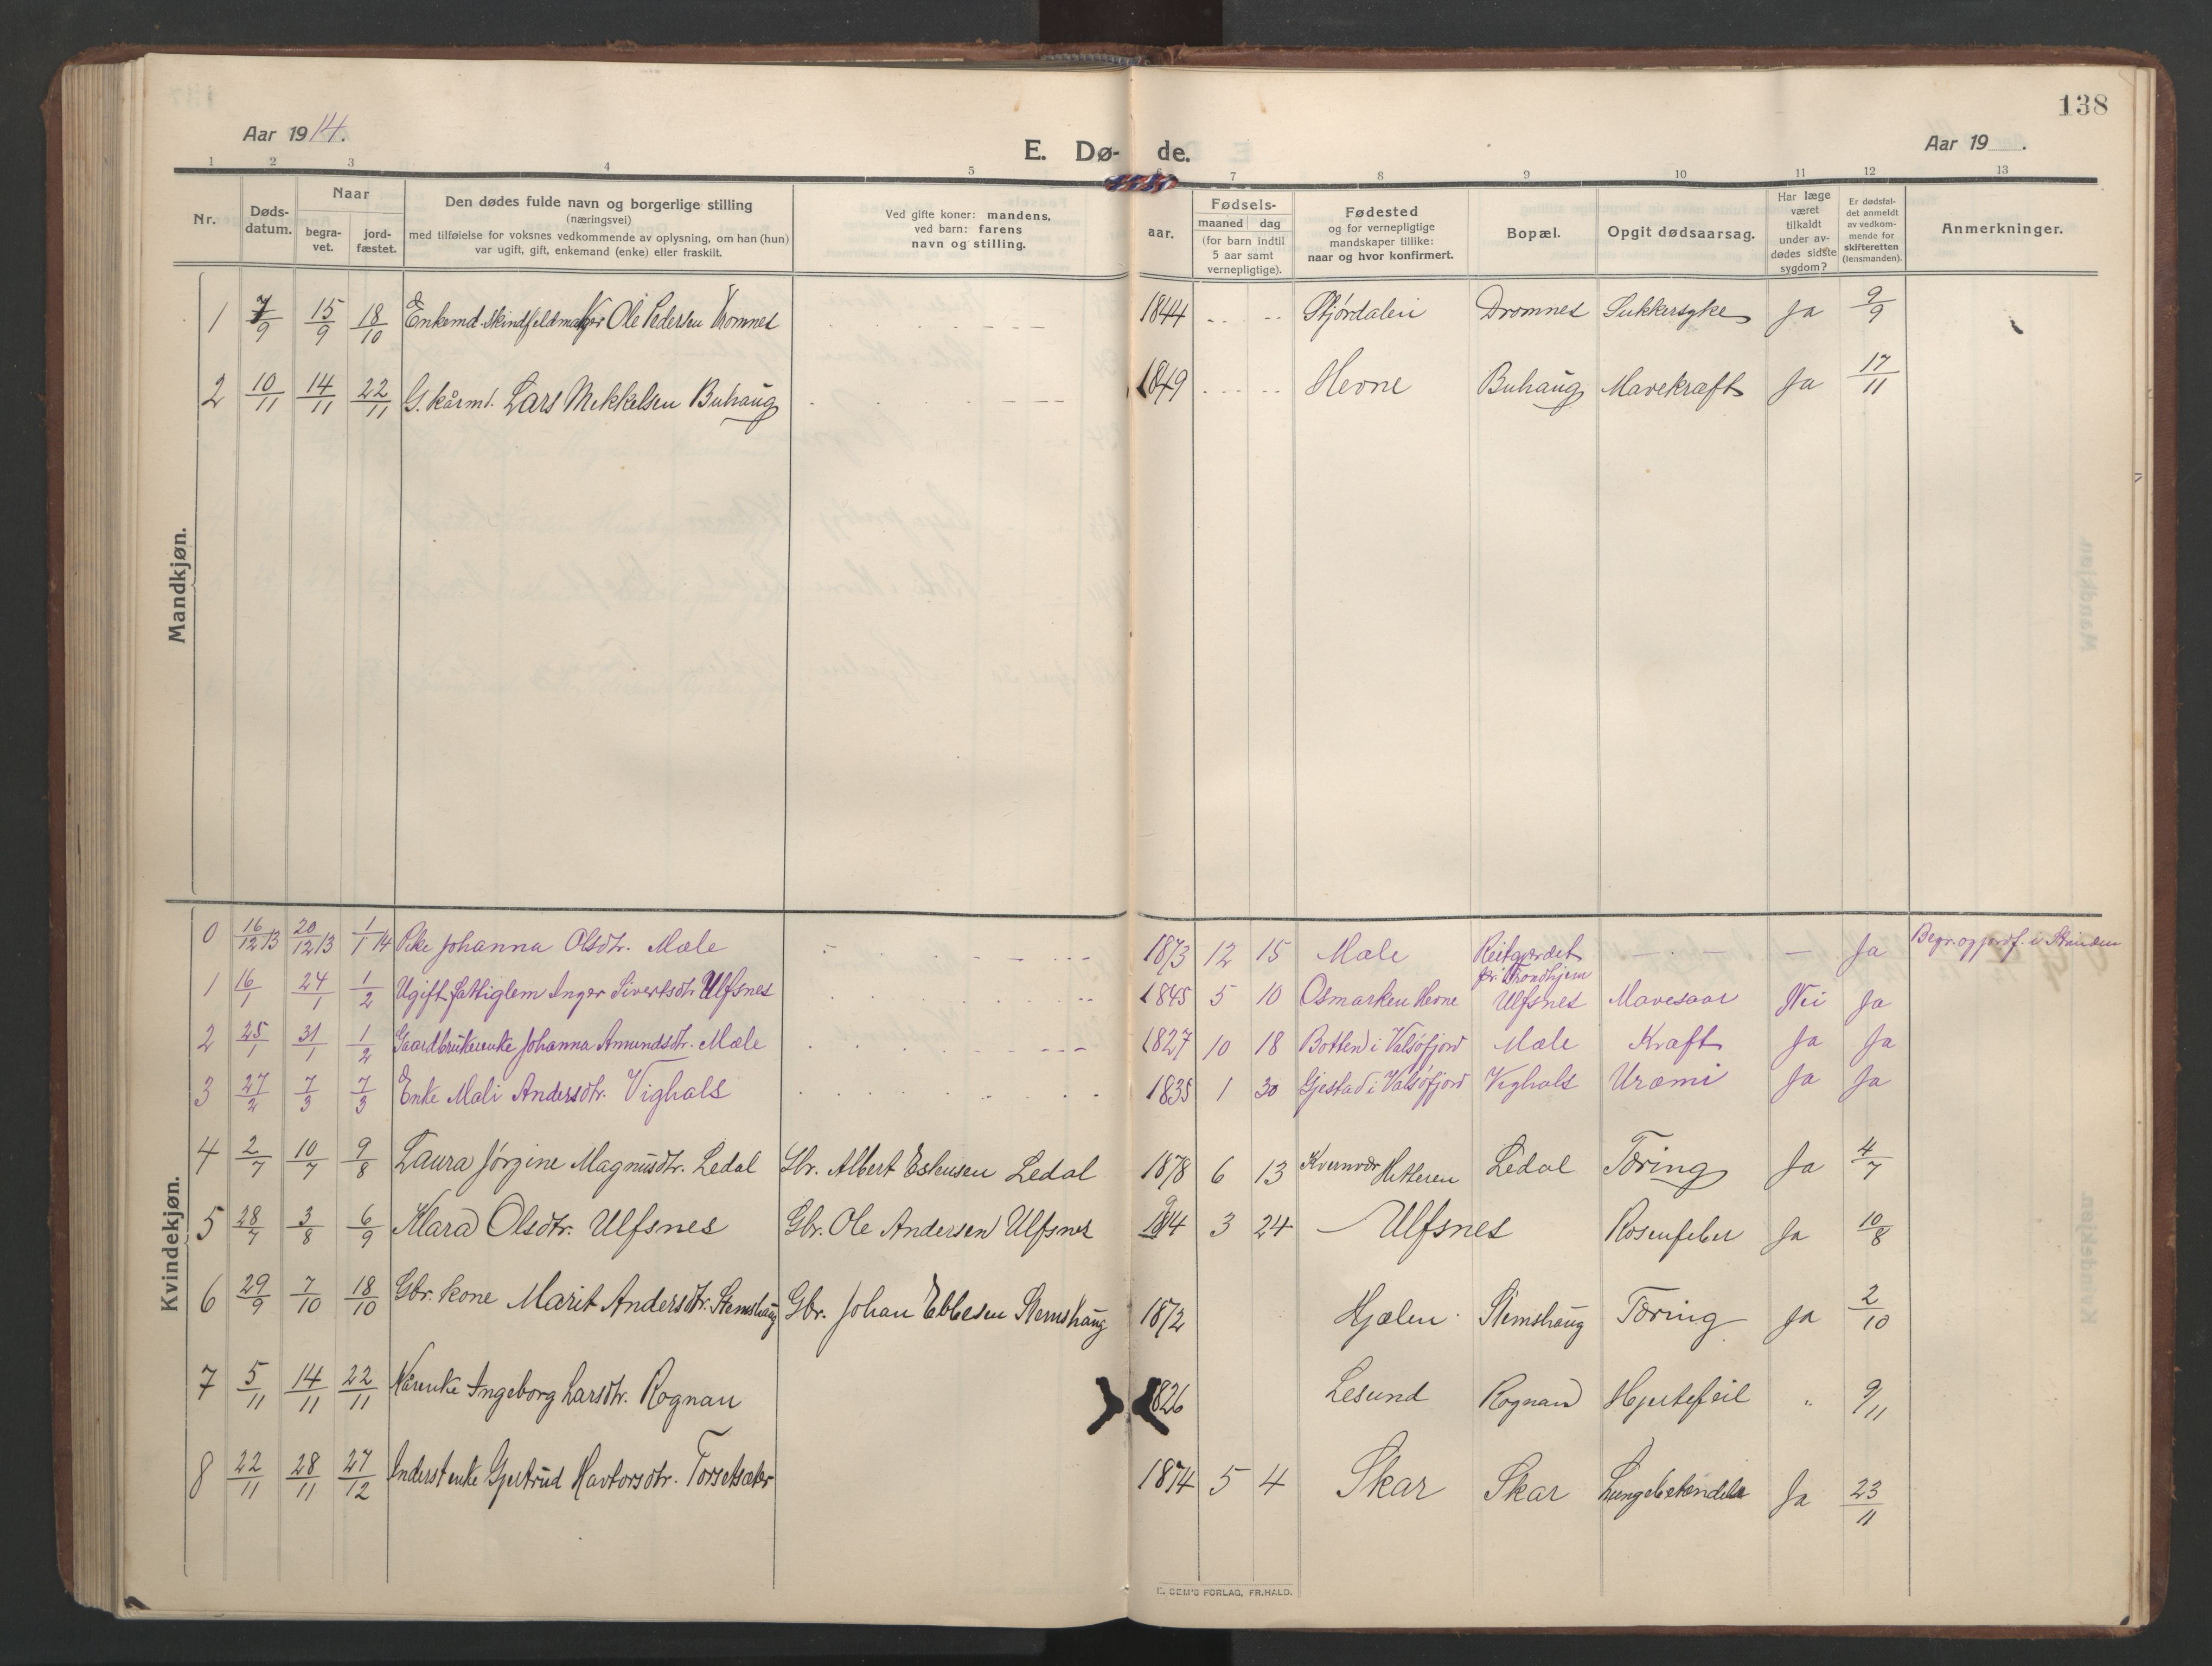 138
Aar 1914.
E. Dø- de.
Aar 19 .
1 2 3 4 5 6 7 8 9 10 11 12 13
Nr.
Døds-
datum.
Naar
begra-
vet.
jord-
fæstet.
Den dødes fulde navn og borgerlige stilling
(næringsvei)
med tilføielse for voksnes vedkommende av oplysning, om han (hun)
var ugift, gift, enkemand (enke) eller fraskilt.
Ved gifte koner: mandens,
ved barn: farens
navn og stilling.
aar.
Fødsels-
maaned dag
(for barn indtil
5 aar samt
vernepligtige).
Fødested
og for vernepligtige
mandskaper tillike:
naar og hvor konfirmert.
Bopæl.
Opgit dødsaarsag.
Har læge
været
tilkaldt
under av-
dødes sidste
sygdom?
Er dødsfal-
det anmeldt
av vedkom-
mende for
skifteretten
(lensmanden).
Anmerkninger.
Mandkjøn.
1 7/9 15/9 18/10 Enkemd. Skindfeldmager Ole Pedersen Dromnes 1844 Stjørdalen Dromnes Sukkersyke Ja 9/9
2 10/11 14/11 22/11 G. kårmd. Lars Mikkelsen Buhaug 1849 Hevne Buhaug Mavekræft Ja 17/11
Kvindekjøn.
0 16/12 13 20/12 13 1/1 14 Pike Johanna Olsdtr. Mæle 1873 12 15 Mæle Reitgjerdet pr. Trondhjem — Ja Begr. og jordf. i Strinden
1 16/1 24/1 1/2 Ugift fattiglem Inger Sivertsdtr Ulfsnes 1845 5 10 Osmarken Hevne Ulfsnes Mavesaar Nei Ja
2 25/1 31/1 1/2 Gaardbrukerenke Johanna Amundsdtr. Mæle 1827 10 18 Botten i Valsøfjord Mæle Kræft Ja Ja
3 27/2 7/3 7/3 Enke Mali Andersdtr. Vighals 1835 1 30 Gjestad i Valsøfjord Vighals Uræmi Ja Ja
4 2/7 10/7 9/8 Laura Jørgine Magnusdtr. Ledal Gbr. Albert Eshusen Ledal 1878 6 13 Kvernvær Hitteren Ledal Tæring Ja 4/7
5 28/7 3/8 6/9 Klara Olsdtr. Ulfsnes Gbr. Ole Andersen Ulfsnes 1914 3 24 Ulfsnes Rosenfeber Ja 10/8
6 29/9 7/10 18/10 Gbr. kone Marit Andersdtr. Stemshaug Gbr. Johan Ebbesen Stemshaug 1872 Hjælen Stemshaug Tæring Ja 2/10
7 5/11 14/11 22/11 Kårenke Ingeborg Larsdtr. Rognan 1826 Lesund Rognan Hjertefeil " 9/11
8 22/11 28/11 27/12 Inderstenke Gjertrud Havtorsdtr. Torsetsæter 1874 5 4 Skar Skar Lungebetændelse Ja 23/11
E. SEM'S FORLAG, FR.HALD.